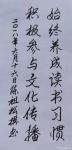 始终养成读书习惯
积极参与文化传播
二〇一八年六月十六日陈祖松撰